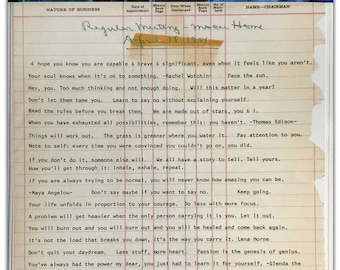 NATURE OF BUSINESS Date of Appointment Minute Book Page Date When Discharged Minute Book Page NAME—CHAIRMAN
Regular Meeting - Moose Home
April 18 1957
I hope you know you are capable & brave & significant, even when it feels like you aren't.
Your soul knows when it's on to something. -Rachel Wotchin- Face the sun.
Hey, you. Too much thinking and not enough doing. Will this matter in a year?
Don't let them tame you. Learn to say no without explaining yourself.
Read the rules-before you break them. We are made out of stars, you & I.
When you have exhausted all possibilities, remember this: you haven't. -Thomas Edison-
Things will work out. The grass is greener where you water it. Pay attention to you.
Note to self: every time you were convinced you couldn't go on, you did.
If you don't do it, someone else will. We all have a story to tell. Tell yours.
How you'll get through it: inhale, exhale, repeat.
If you are always trying to be normal, you will never know how amazing you can be.
-Maya Angelou- Don't say maybe if you want to say no. Keep going.
Your life unfolds in proportion to your courage. Do less with more focus.
A problem will get heavier when the only person carrying it is you. Let it out.
You will burn out and you will burn out and you will be healed and come back again.
It's not the load that breaks you down, it's the way you carry it. Lena Horne
Don't quit your daydream. Less stuff, more heart. Passion is the genesis of genius.
You've always had the power my dear, you just had to learn it for yourself. -Glenda the